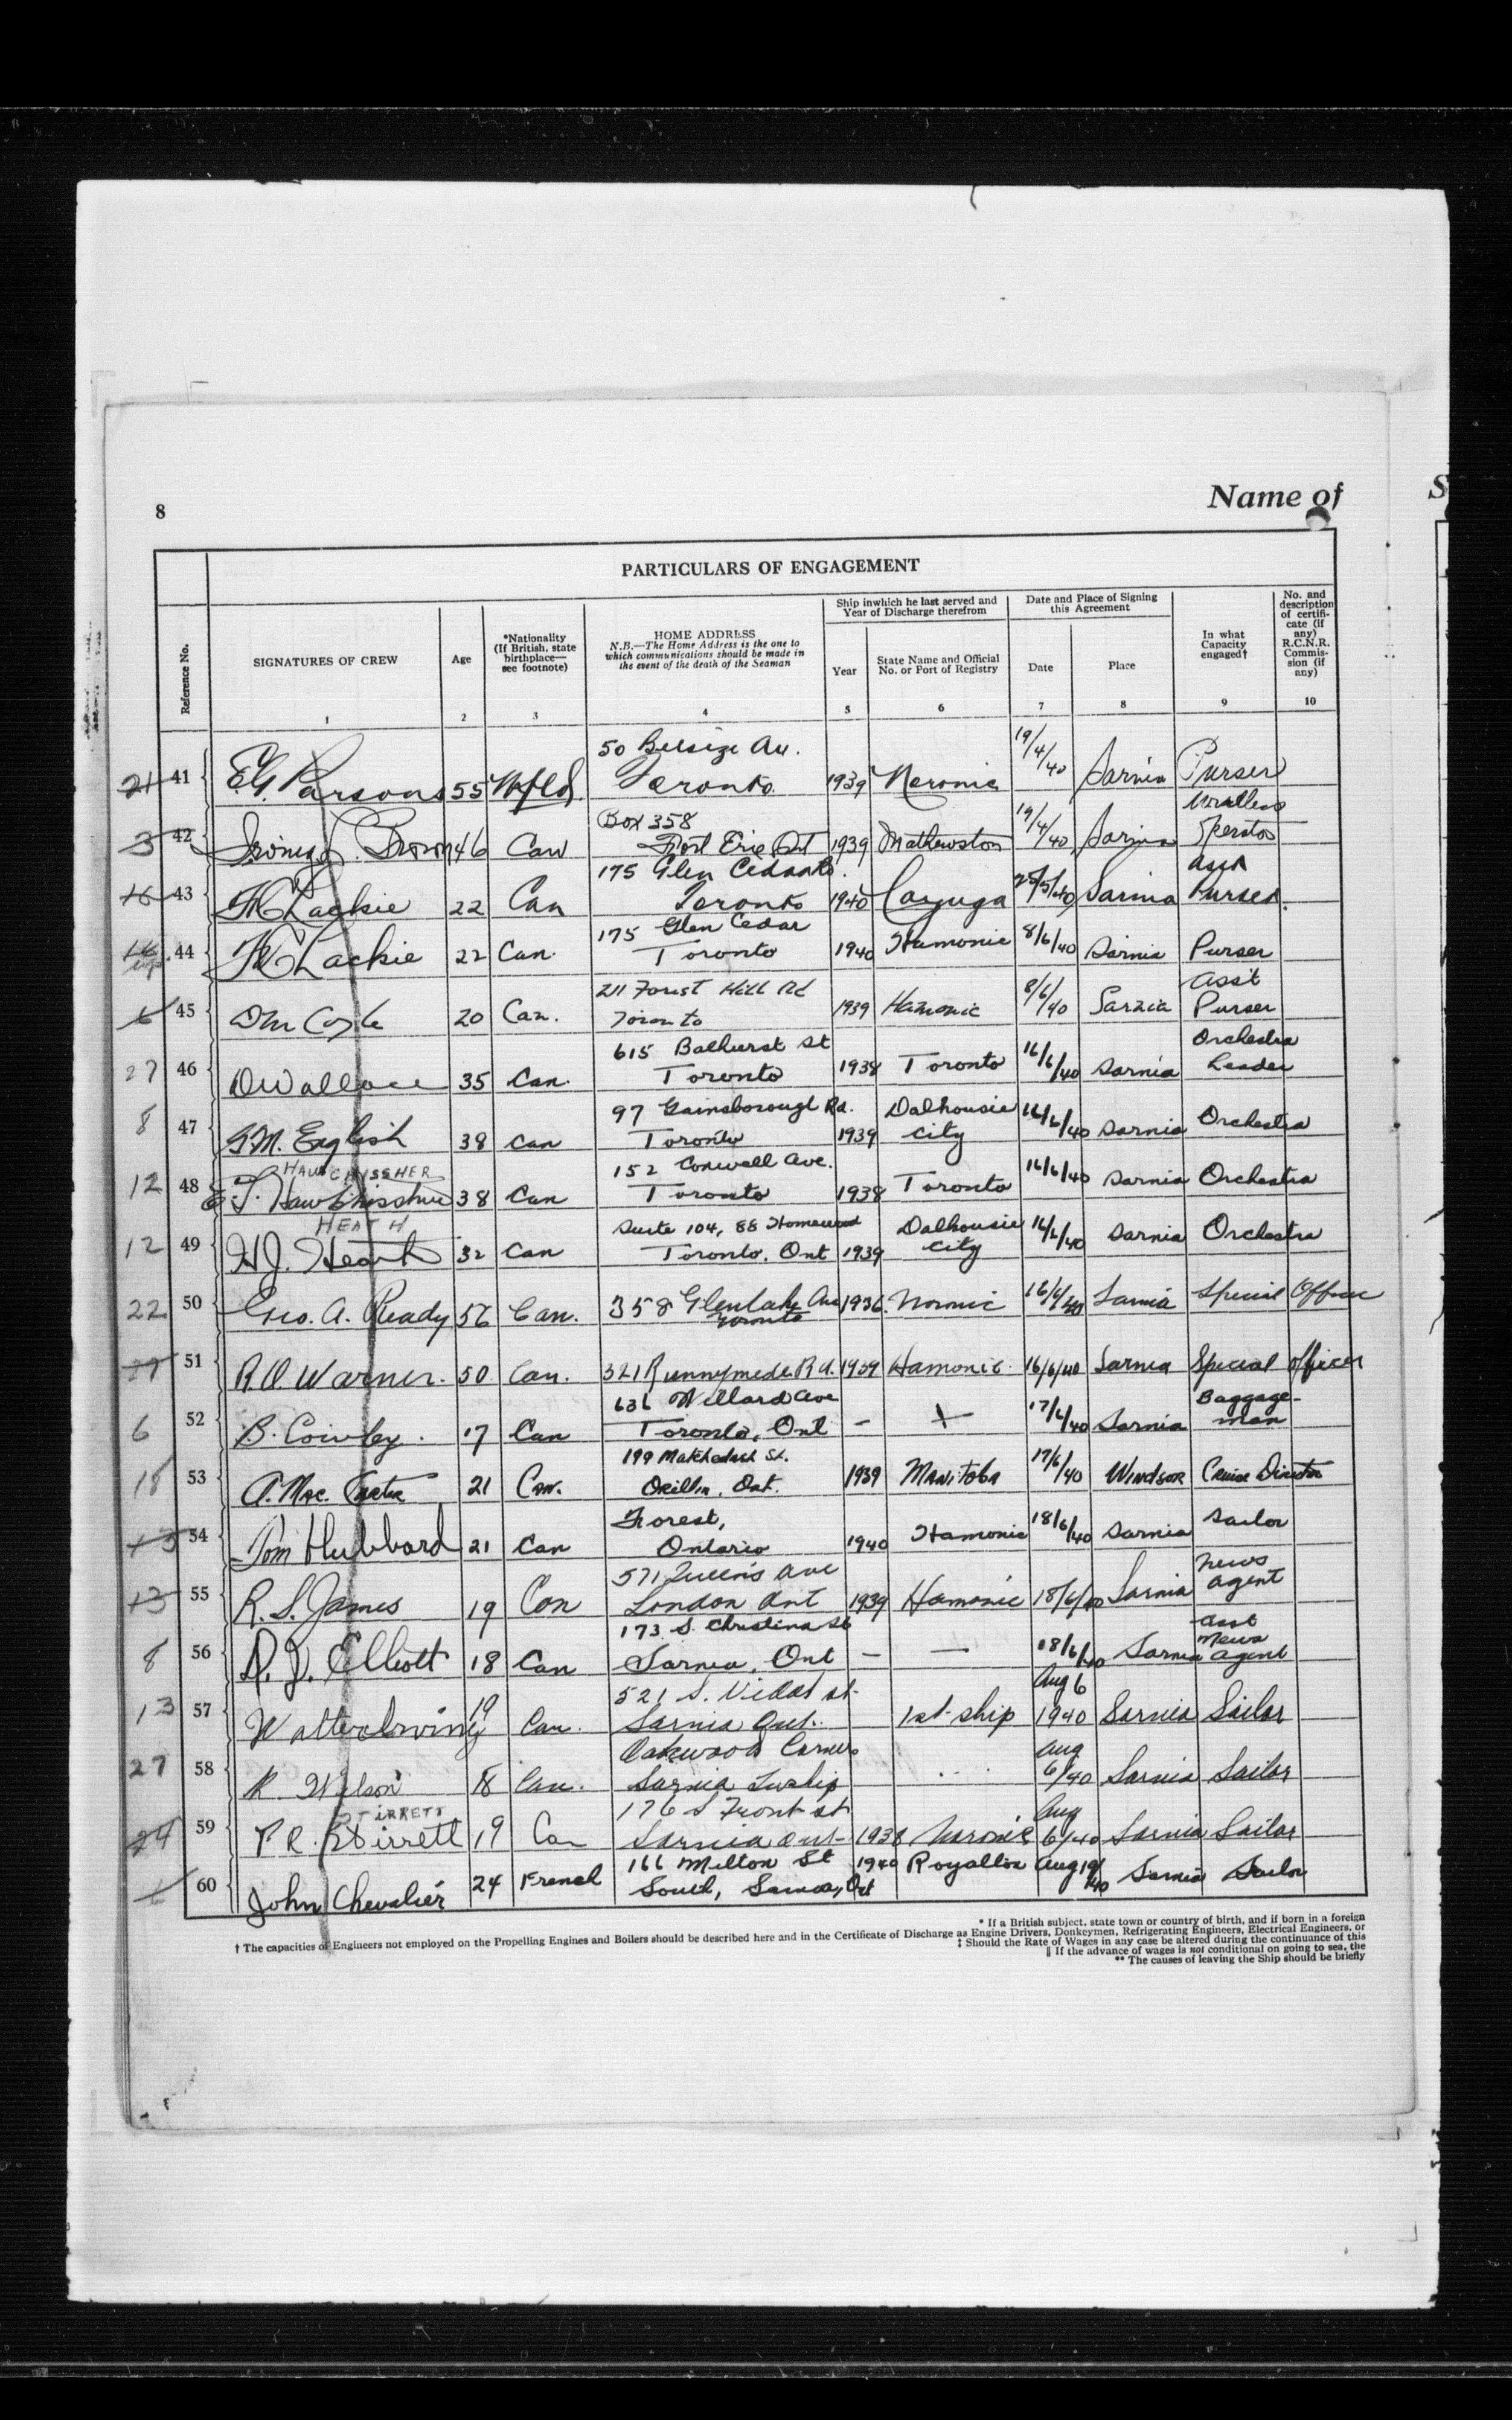 8
Name of
S
PARTICULARS OF ENGAGEMENT
Reference No.
SIGNATURES OF CREW
Age
*Nationality
(If British, state
birthplace—
see footnote)
HOME ADDRESS
N.B.—The Home Address is the one to
which communications should be made in
the event of the death of the Seaman
Ship inwhich he last served and
Year of Discharge therefrom
Year
State Name and Official
No. or Port of Registry
Date and Place of Signing
this Agreement
Date
Place
In what
Capacity
engaged†
No. and
description
of certifi-
cate (if
any)
R.C.N.R.
Commis-
sion (if
any)
1 2 3 4 5 6 7 8 9 10
50 Belsize Av. 19/4/40
21 41 E.G. Parsons 55 Nfld. Toronto 1939 Noronic Sarnia Purser
Box 358 19/4/40 Wireless
3 42 Irving J. Brown 46 Can Fort Erie Ont 1939 Mathewston Sarnia Operator
175 Glen Cedar Asst
16 43 Lackie 22 Can Toronto 1940 Cayuga 25/5/40 Sarnia Purser.
175 Glen Cedar
44 Lackie 22 Can. Toronto 1940 Hamonic 8/6/40 Sarnia Purser
211 Forest Hill Rd Ass't
6 45 DM Coyle 20 Can. Toronto 1939 Hamonic 8/6/40 Sarnia Purser
615 Bathurst St Orchestra
27 46 D Wallace 35 Can. Toronto 1938 Toronto 16/6/40 Sarnia Leader
97 Gainsborough Rd. Dalhousie
8 47 G.M. English 38 Can Toronto 1939 City 16/6/40 Sarnia Orchestra
HAW CHISSHER 152 Conwell Ave.
12 48 38 Can Toronto 1938 Toronto 16/6/40 Sarnia Orchestra
HEATH Suite 104, 88 Homewood Dalhousie
12 49 H.J. Heath 32 Can Toronto, Ont 1939 City 16/6/40 Sarnia Orchestra
22 50 Geo. A. Ready 56 Can. 358 Glenlake Ave 1936 Noronic 16/6/40 Sarnia Special Officer
Toronto
27 51 R.A. Warner. 50 Can. 321 Runnymede Rd. 1939 Hamonic 16/6/40 Sarnia Special officer
636 Willard Ave Baggage-
6 52 B. Cowley. 17 Can Toronto, Ont – 17/6/40 Sarnia man
199 Matchedash St.
18 53 A. Mac. Carter 21 Can. Orillia, Ont. 1939 Manitoba 17/6/40 Windsor Cruise Director
Forest,
13 54 Tom Hubbard 21 Can Ontario 1940 Hamonic 18/6/40 Sarnia Sailor
571 Queens Ave News
13 55 R.S. James 19 Can London Ont 1939 Hamonic 18/6/40 Sarnia Agent
173 S. Christina St Asst
News
8 56 D. J. Elliott 18 Can Sarnia, Ont – – 18/6/40 Sarnia Agent
521 S. Vidal st. Aug 6
13 57 Walter Irving 19 Can. Sarnia Ont. 1st ship 1940 Sarnia Sailor
Oakwood Corners Aug
27 58 R. Wilson 18 Can. Sarnia Twship 6/40 Sarnia Sailor
STIRRETT 176 S Front st Aug
24 59 P R. Stirrett 19 Can Sarnia Ont 1938 Noronic 6/40 Sarnia Sailor
166 Milton St 1940 Royalton Aug 19/40
6 60 John Chevalier 24 French South, Sarnia, Ont Sarnia Sailor
* If a British subject, state town or country of birth, and if born in a foreign
† The capacities of Engineers not employed on the Propelling Engines and Boilers should be described here and in the Certificate of Discharge as Engine Drivers, Donkeymen, Refrigerating Engineers, Electrical Engineers, or
‡ Should the Rate of Wages in any case be altered during the continuance of this
‖ If the advance of wages is not conditional on going to sea, the
** The causes of leaving the Ship should be briefly